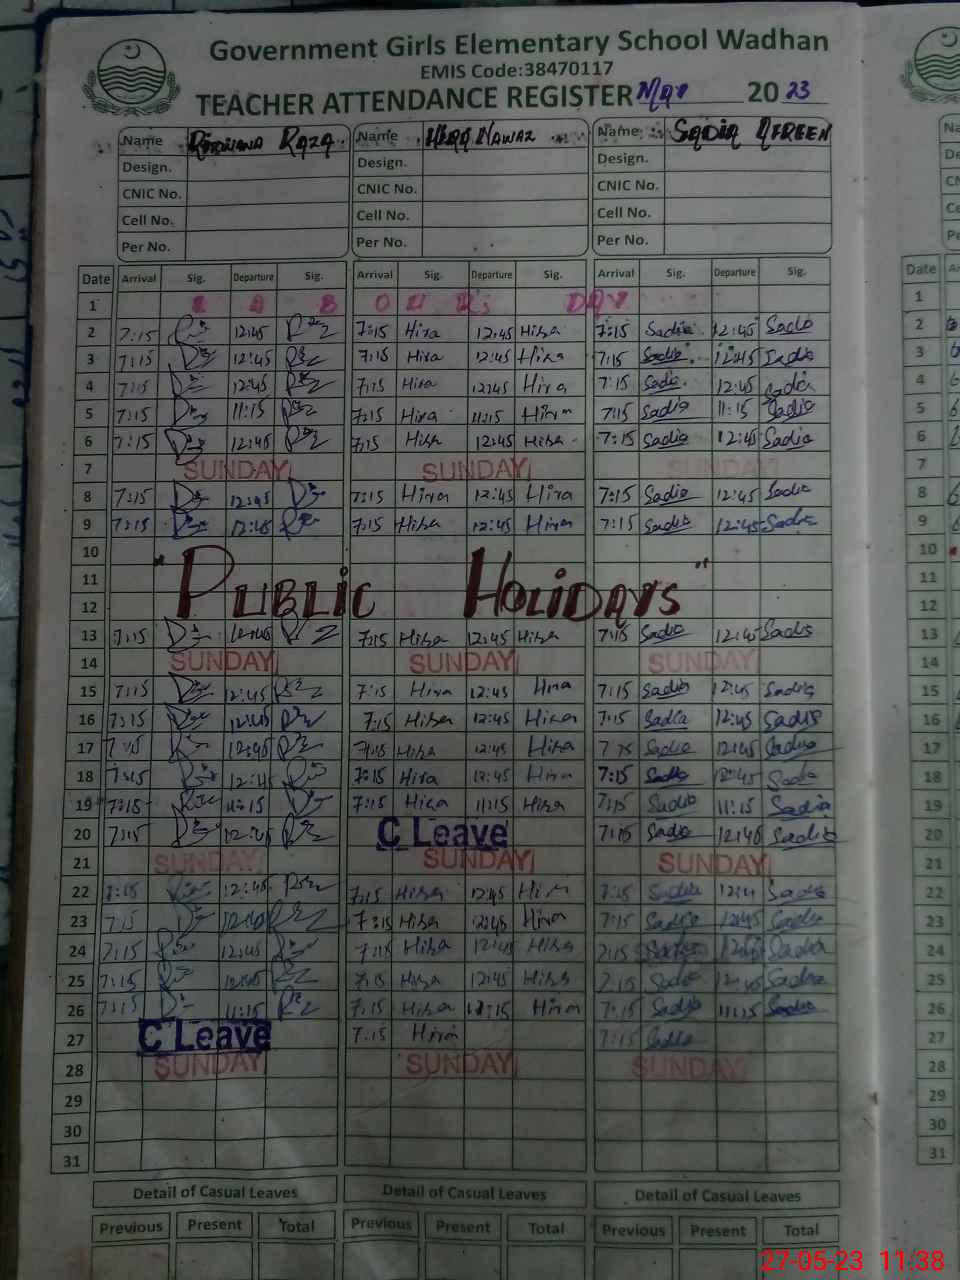 Government Girls Elementary School Wadhan
EMIS Code:38470117
TEACHER ATTENDANCE REGISTER May 2023
Name Rizwana Raza Name Hira Nawaz Name: Sadia Afreen
Design. Design. Design.
CNIC No. CNIC No. CNIC No.
Cell No. Cell No. Cell No.
Per No. Per No. Per No.
Date Arrival Sig. Departure Sig. Arrival Sig. Departure Sig. Arrival Sig. Departure Sig. Date
1 LABOUR'S DAY 1
2 7:15 12:45 7:15 Hira 12:45 Hira 7:15 Sadia 12:45 Sadia 2
3 7:15 12:45 7:15 Hira 12:45 Hira 7:15 Sadia 12:45 Sadia 3
4 7:15 12:45 7:15 Hira 12:45 Hira 7:15 Sadia 12:45 Sadia 4
5 7:15 11:15 7:15 Hira 11:15 Hira 7:15 Sadia 11:15 Sadia 5
6 7:15 12:45 7:15 Hira 12:45 Hira 7:15 Sadia 12:45 Sadia 6
7 SUNDAY SUNDAY SUNDAY 7
8 7:15 12:45 7:15 Hira 12:45 Hira 7:15 Sadia 12:45 Sadia 8
9 7:15 12:45 7:15 Hira 12:45 Hira 7:15 Sadia 12:45 Sadia 9
10 10
11 "PUBLIC HOLIDAYS" 11
12 12
13 7:15 12:45 7:15 Hira 12:45 Hira 7:15 Sadia 12:45 Sadia 13
14 SUNDAY SUNDAY SUNDAY 14
15 7:15 12:45 7:15 Hira 12:45 Hira 7:15 Sadia 12:45 Sadia 15
16 7:15 12:45 7:15 Hira 12:45 Hira 7:15 Sadia 12:45 Sadia 16
17 7:15 12:45 7:15 Hira 12:45 Hira 7:15 Sadia 12:45 Sadia 17
18 7:15 12:45 7:15 Hira 12:45 Hira 7:15 Sadia 12:45 Sadia 18
19 7:15 11:15 7:15 Hira 11:15 Hira 7:15 Sadia 11:15 Sadia 19
20 7:15 12:45 C Leave 7:15 Sadia 12:45 Sadia 20
21 SUNDAY SUNDAY SUNDAY 21
22 7:15 12:45 7:15 Hira 12:45 Hira 7:15 Sadia Sadia 22
23 7:15 7:15 Hira 12:45 Hira 7:15 Sadia 12:45 Sadia 23
24 7:15 12:45 7:15 Hira 12:45 Hira 7:15 Sadia Sadia 24
25 7:15 12:45 7:15 Hira 12:45 Hira 7:15 Sadia 12:45 Sadia 25
26 7:15 11:15 7:15 Hira 11:15 Hira 7:15 Sadia 11:15 Sadia 26
27 C Leave 7:15 Hira 7:15 Sadia 27
28 SUNDAY SUNDAY SUNDAY 28
29 29
30 30
31 31
Detail of Casual Leaves Detail of Casual Leaves Detail of Casual Leaves
Previous Present Total Previous Present Total Previous Present Total
27-05-23 11:38